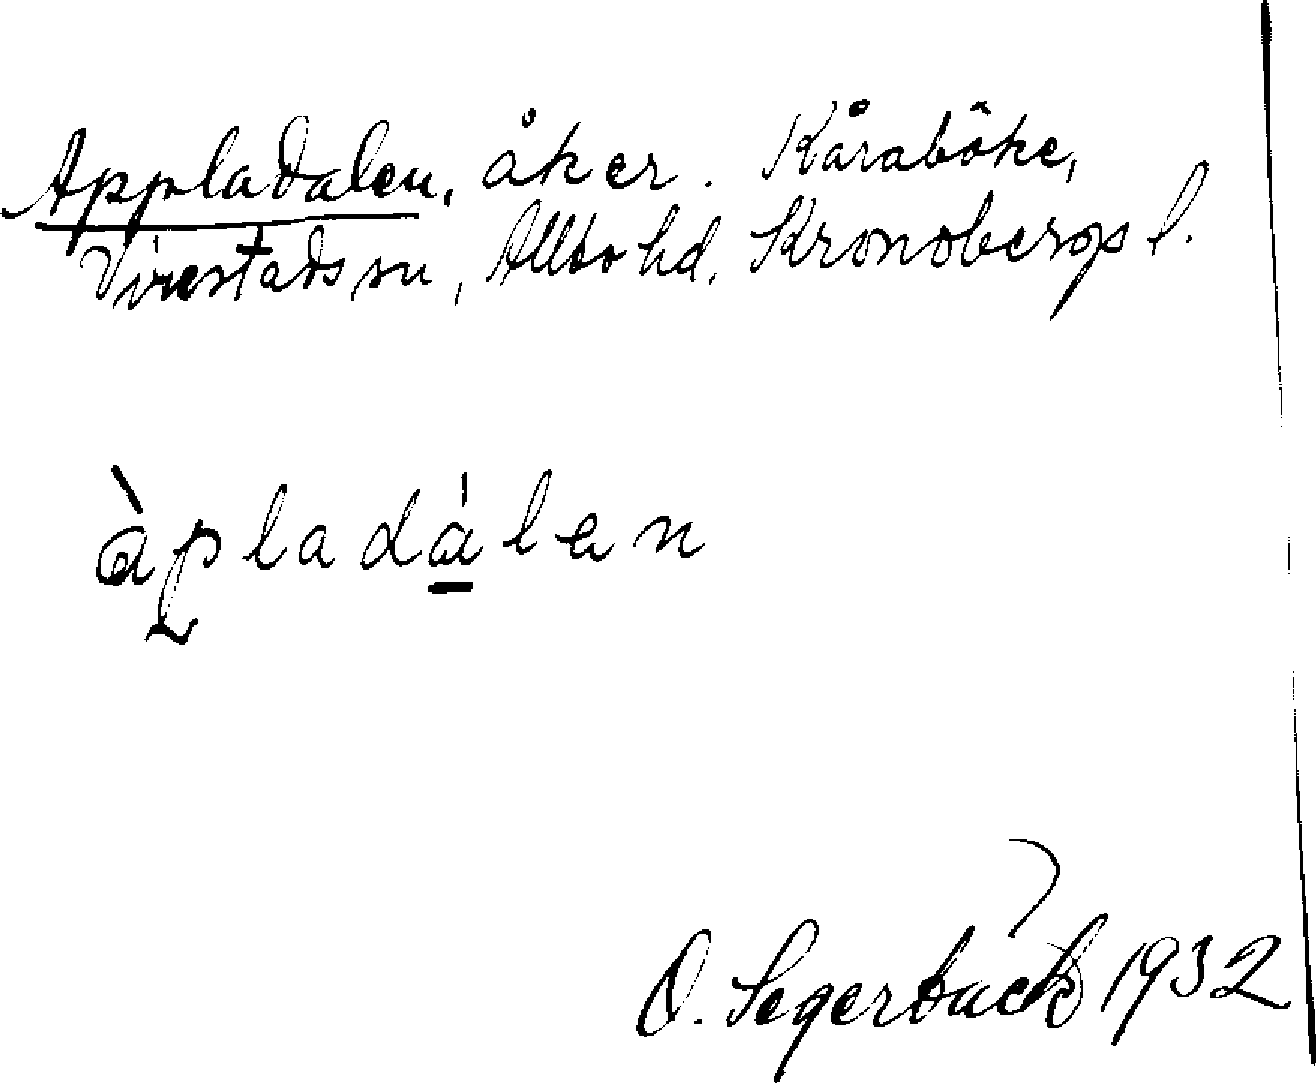 Appladalen, åker. Kåraböke,
Virestads sn, Allbo hd, Kronobergs l.
àpladálen
O. Segerbäck 1932